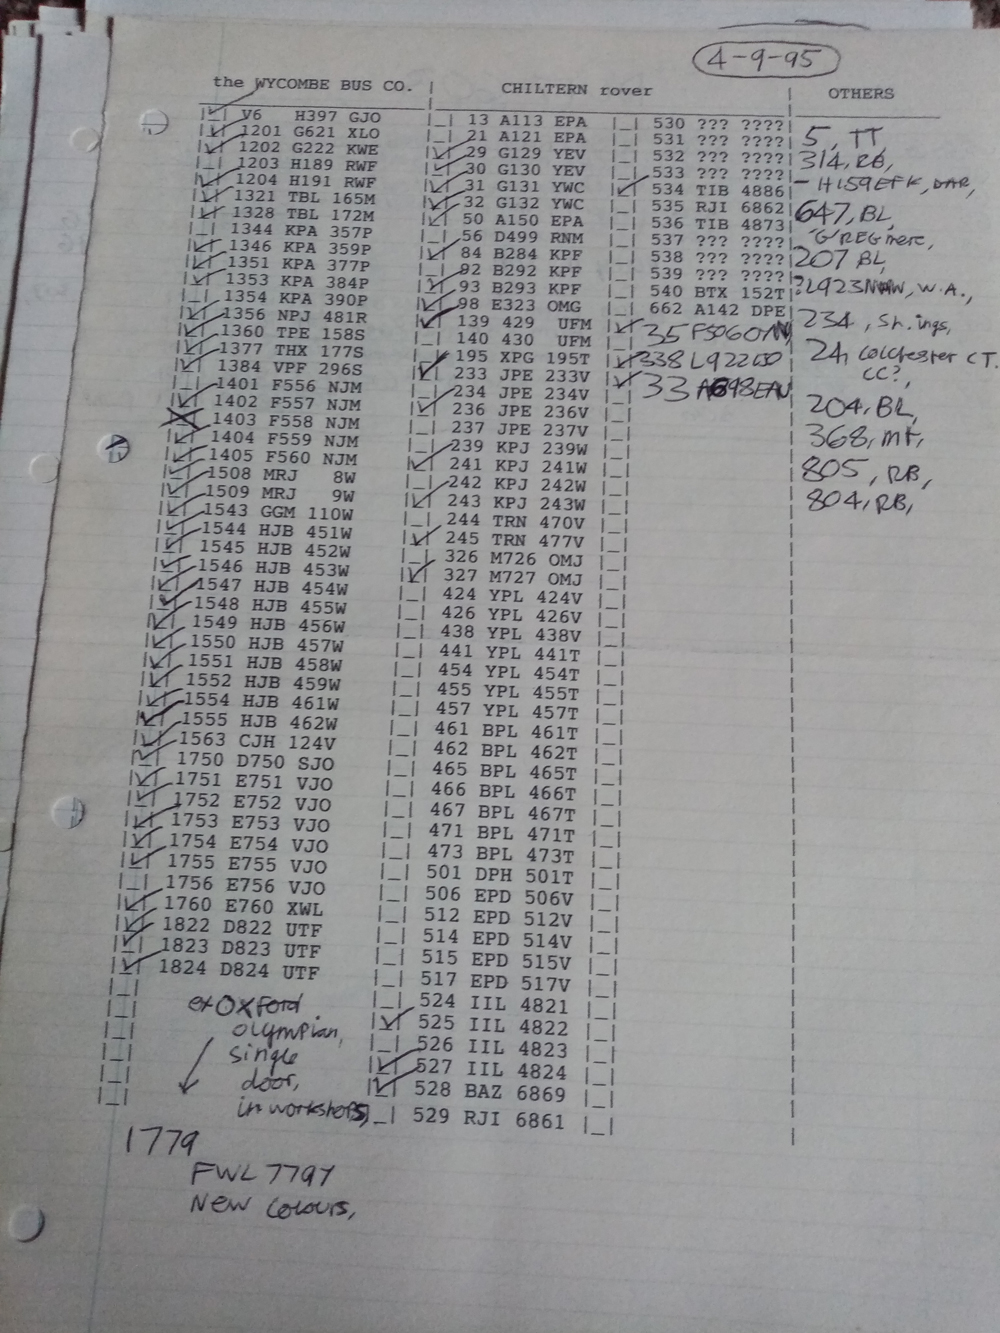 4-9-95
the WYCOMBE BUS CO.
V6 H397 GJO
1201 G621 XLO
1202 G222 KWE
1203 H189 RWF
1204 H191 RWF
1321 TBL 165M
1328 TBL 172M
1344 KPA 357P
1346 KPA 359P
1351 KPA 377P
1353 KPA 384P
1354 KPA 390P
1356 NPJ 481R
1360 TPE 158S
1377 THX 177S
1384 VPF 296S
1401 F556 NJM
1402 F557 NJM
1403 F558 NJM
1404 F559 NJM
1405 F560 NJM
1508 MRJ 8W
1509 MRJ 9W
1543 GGM 110W
1544 HJB 451W
1545 HJB 452W
1546 HJB 453W
1547 HJB 454W
1548 HJB 455W
1549 HJB 456W
1550 HJB 457W
1551 HJB 458W
1552 HJB 459W
1554 HJB 461W
1555 HJB 462W
1563 CJH 124V
1750 D750 SJO
1751 E751 VJO
1752 E752 VJO
1753 E753 VJO
1754 E754 VJO
1755 E755 VJO
1756 E756 VJO
1760 E760 XWL
1822 D822 UTF
1823 D823 UTF
1824 D824 UTF
ex Oxford
olympian,
single
door,
in workshops,
1779
FWL 779Y
New Colours,
CHILTERN rover
13 A113 EPA
21 A121 EPA
29 G129 YEV
30 G130 YEV
31 G131 YWC
32 G132 YWC
50 A150 EPA
56 D499 RNM
84 B284 KPF
92 B292 KPF
93 B293 KPF
98 E323 OMG
139 429 UFM
140 430 UFM
195 XPG 195T
233 JPE 233V
234 JPE 234V
236 JPE 236V
237 JPE 237V
239 KPJ 239W
241 KPJ 241W
242 KPJ 242W
243 KPJ 243W
244 TRN 470V
245 TRN 477V
326 M726 OMJ
327 M727 OMJ
424 YPL 424V
426 YPL 426V
438 YPL 438V
441 YPL 441T
454 YPL 454T
455 YPL 455T
457 YPL 457T
461 BPL 461T
462 BPL 462T
465 BPL 465T
466 BPL 466T
467 BPL 467T
471 BPL 471T
473 BPL 473T
501 DPH 501T
506 EPD 506V
512 EPD 512V
514 EPD 514V
515 EPD 515V
517 EPD 517V
524 IIL 4821
525 IIL 4822
526 IIL 4823
527 IIL 4824
528 BAZ 6869
529 RJI 6861
530 ??? ????
531 ??? ????
532 ??? ????
533 ??? ????
534 TIB 4886
535 RJI 6862
536 TIB 4873
537 ??? ????
538 ??? ????
539 ??? ????
540 BTX 152T
662 A142 DPE
35
338
33
OTHERS
5, TT,
314, RB,
- H159EFK,
647, BL,
'G' REG merc,
207 BL,
W.A.,
234, St. ings,
24, Colchester CT.
CC?,
204, BL,
368, MK,
805, RB,
804, RB,